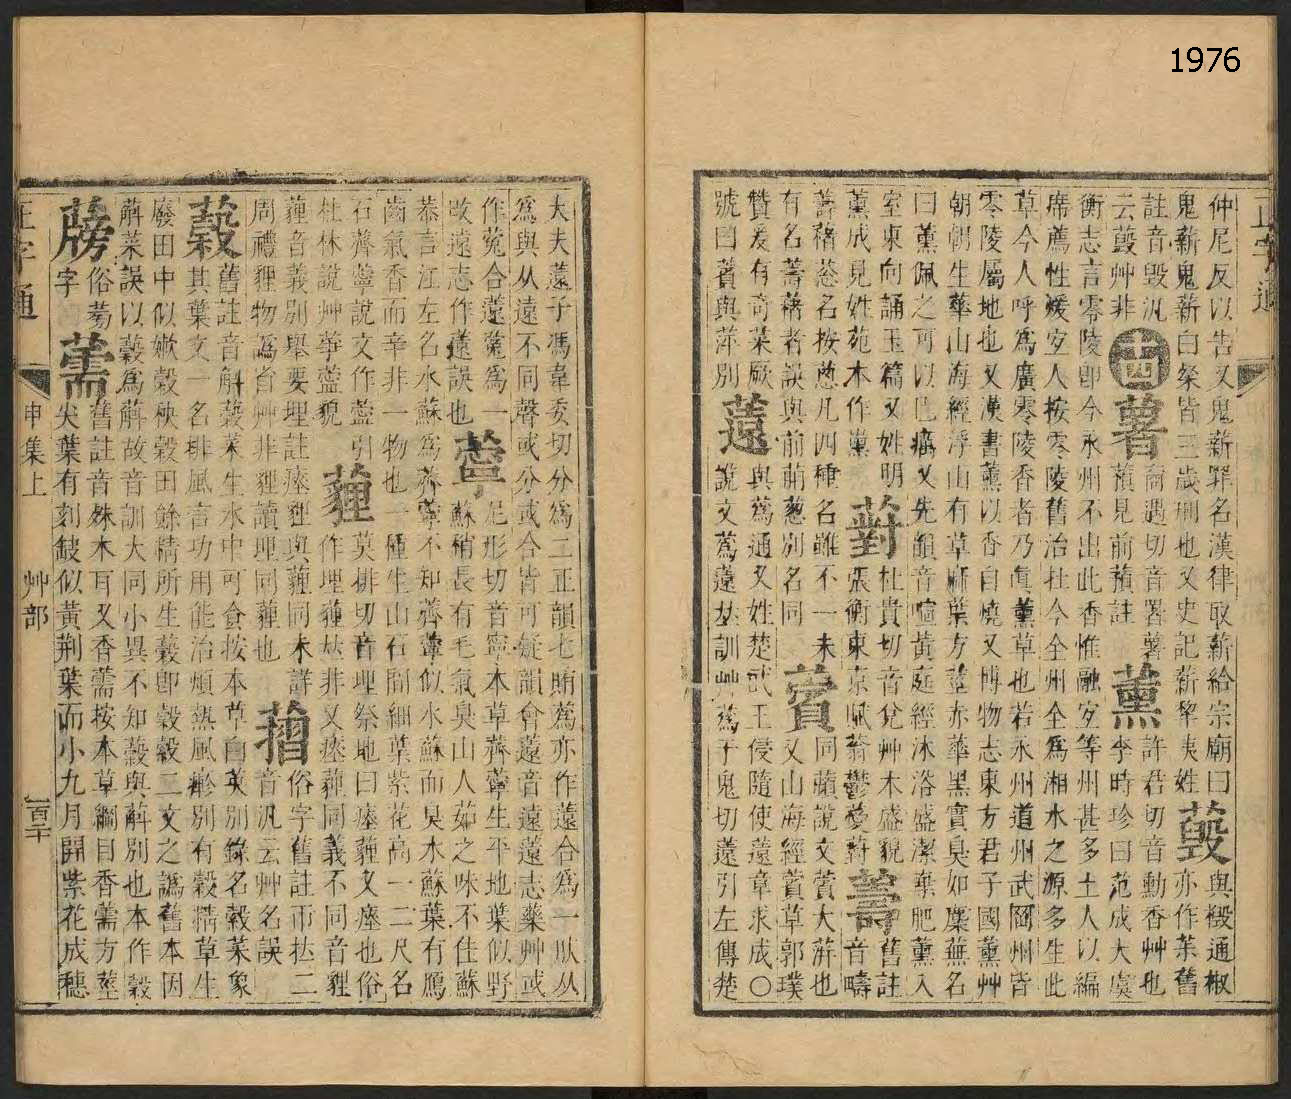 仲尼反以告又鬼薪罪名漢律取薪給宗廟曰
鬼薪鬼薪白粲皆三歲刑也又史記薪犂夷姓
毀 與檓通椒
亦作茱舊
註音毀汎
云藙艸非
十四
薯 裔遇切音署薯
蕷見前蕷註
薰 許君切音動香艸也
李時珍曰范成大虞
衡志言零陵即今永州不出此香惟融宜等州甚多土人以編
席薦性煖宜人按零陵舊治在今全州全為湘水之源多生此
草今人呼為廣零陵香者乃真薰草也若永州道州武岡州皆
零陵屬地也又漢書薰以香自燒又博物志東方君子國薰艸
朝朝生華山海經浮山有草麻葉方莖赤華黑實臭如蘪蕪名
曰薰佩之可以已癘又先韻音喧黃庭經沐浴盛潔棄肥薰入
室東向誦玉篇又姓明
薰成見姓苑本作熏
薱 杜貴切音兌艸木盛貌
張衡東京賦蓊鬱薆薱
薵 舊註
音疇
薵藸葱名按葱凡四種名雖不一未
有名薵藸者誤與前莦葱別名同
薲 同蘋說文薲大蓱也
又山海經薲草郭璞
贊爰有奇菜厥
號曰薲與萍別
薳 與蔿通又姓楚武王侵隨使薳章求成○
說文蔿薳𠀤訓艸蔿于鬼切薳引左傳楚
大夫薳子馮韋委切分為二正韻七賄蔿亦作薳合為一㕥从
為與从遠不同聲或分或合皆可疑韻會薳音遠薳志藥艸或
作蒬合薳蒬為一
改遠志作薳誤也
薴 尼形切音寧本草薺薴生平地葉似野
蘇稍長有毛氣臭山人茹之味不佳蘇
恭言江左名水蘇為薺薴不知薺薴似水蘇而臭水蘇葉有鴈
齒氣香而辛非一物也一種生山石間細葉紫花高一二尺名
石薺薴說文作薴引
杜林說艸薴藍貌
薶 莫排切音埋祭地曰瘞薶又瘞也俗
作埋薶𠀤非又瘞薶同義不同音貍
薶音義別舉要埋註瘞貍與薶同未詳
周禮貍物譌省艸非貍讀埋同薶也
俗字舊註帀拡二
音汎云艸名誤
薣 舊註音斛薣菜生水中可食按本草白英別錄名榖菜象
其葉文一名排風言功用能治煩熱風疹別有穀精草生
廢田中似嫩穀秧穀田餘精所生薣即穀穀二文之譌舊本因
蔛菜誤以薣為蔛故音訓大同小異不知薣與蔛別也本作穀
俗蒡
字
薷 舊註音殊木耳又香薷按本草綱目香薷方莖
尖葉有刻缺似黃荆葉而小九月開紫花成穗
正字通
申集上
艸部
百二十
1976